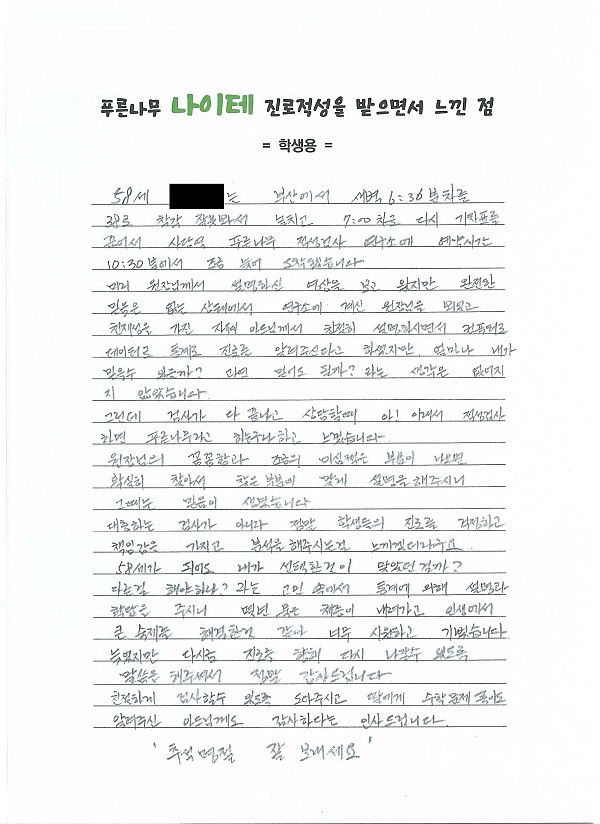 푸른나무 나이테 진로적성을 받으면서 느낀 점
= 학생용 =
58세 는 부산에서 새벽 6:30분차를
38로 착각 잘못봐서 놓치고 7:00차를 다시 기차표를
끊어서 사당역 푸른나무 적성검사 연구소에 예약시간
10:30분에서 조금 늦어 도착했습니다
미리 원장님께서 설명하신 영상을 보고 왔지만 완전한
믿음은 없는 상태에서 연구소에 계신 원장님을 뵈었고
천재성을 가진 자제 아드님께서 친절히 설명하시면서 컴퓨터로
데이터로 통계로 진로를 알려주신다고 하셨지만, 얼마나 내가
믿을수 있을까? 과연 믿어도 될까? 라는 생각은 없어지
지 않았습니다.
그런데 검사가 다 끝나고 상담할때 아! 이래서 적성검사
하면 푸른나무라고 하는구나하고 느꼈습니다
원장님의 꼼꼼함과 조금의 미심쩍은 부분이 나오면
확실히 찾아서 찾은 부분에 맞게 설명을 해주시니
그때는 믿음이 생겼습니다
대충하는 검사가 아니라 정말 학생들의 진로를 걱정하고
책임감을 가지고 분석을 해주시는걸 느끼겠더라구요
58세가 되어도 내가 선택한것이 맞았던 걸까?
다른걸 해야하나? 라는 고민 속에서 통계에 의해 설명과
해답을 주시니 몇년 묵은 체증이 내려가고 인생에서
큰 숙제를 해결한것 같아 너무 시원하고 기뻤습니다
늦었지만 다시금 진로를 향해 다시 나갈수 있도록
말씀을 해주셔서 정말 감사드립니다
친절하게 검사할수 있도록 도와주시고 딸에게 수학문제 풀이도
알려주신 아드님께도 감사하다는 인사드립니다.
'추석명절 잘 보내세요'